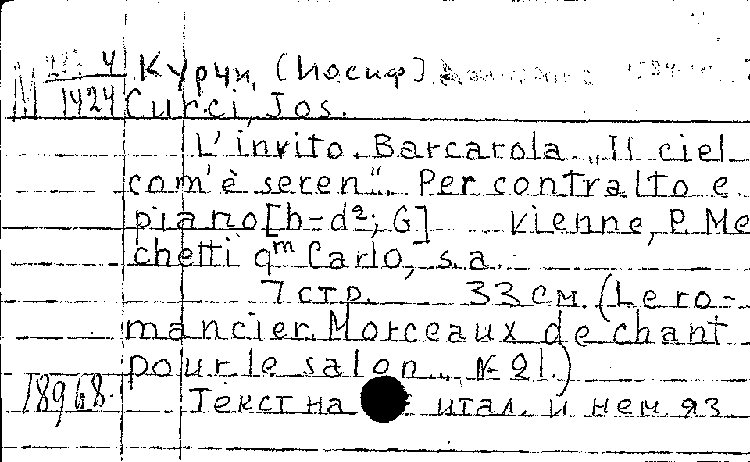 М 4 Курчи, (Иосиф)
1424 Curci, Jos.
L'invito. Barcarola. „Il ciel
com'è seren“. Per contralto e
piano [h-d²; G] Vienne, P. Me
chetti qᵐ Carlo, s.a.
7 стр. 33 см. (Le ro-
mancier. Morceaux de chant
pour le salon... № 21.)
18968. Текст на итал. и нем. яз